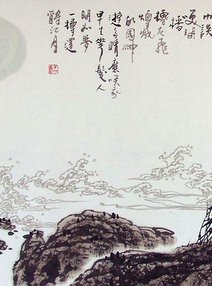 巾談
笑間檣
櫓灰飛
煙滅
故國神
遊多情應笑我
早生華髮人
間如夢
一樽還
酹江月